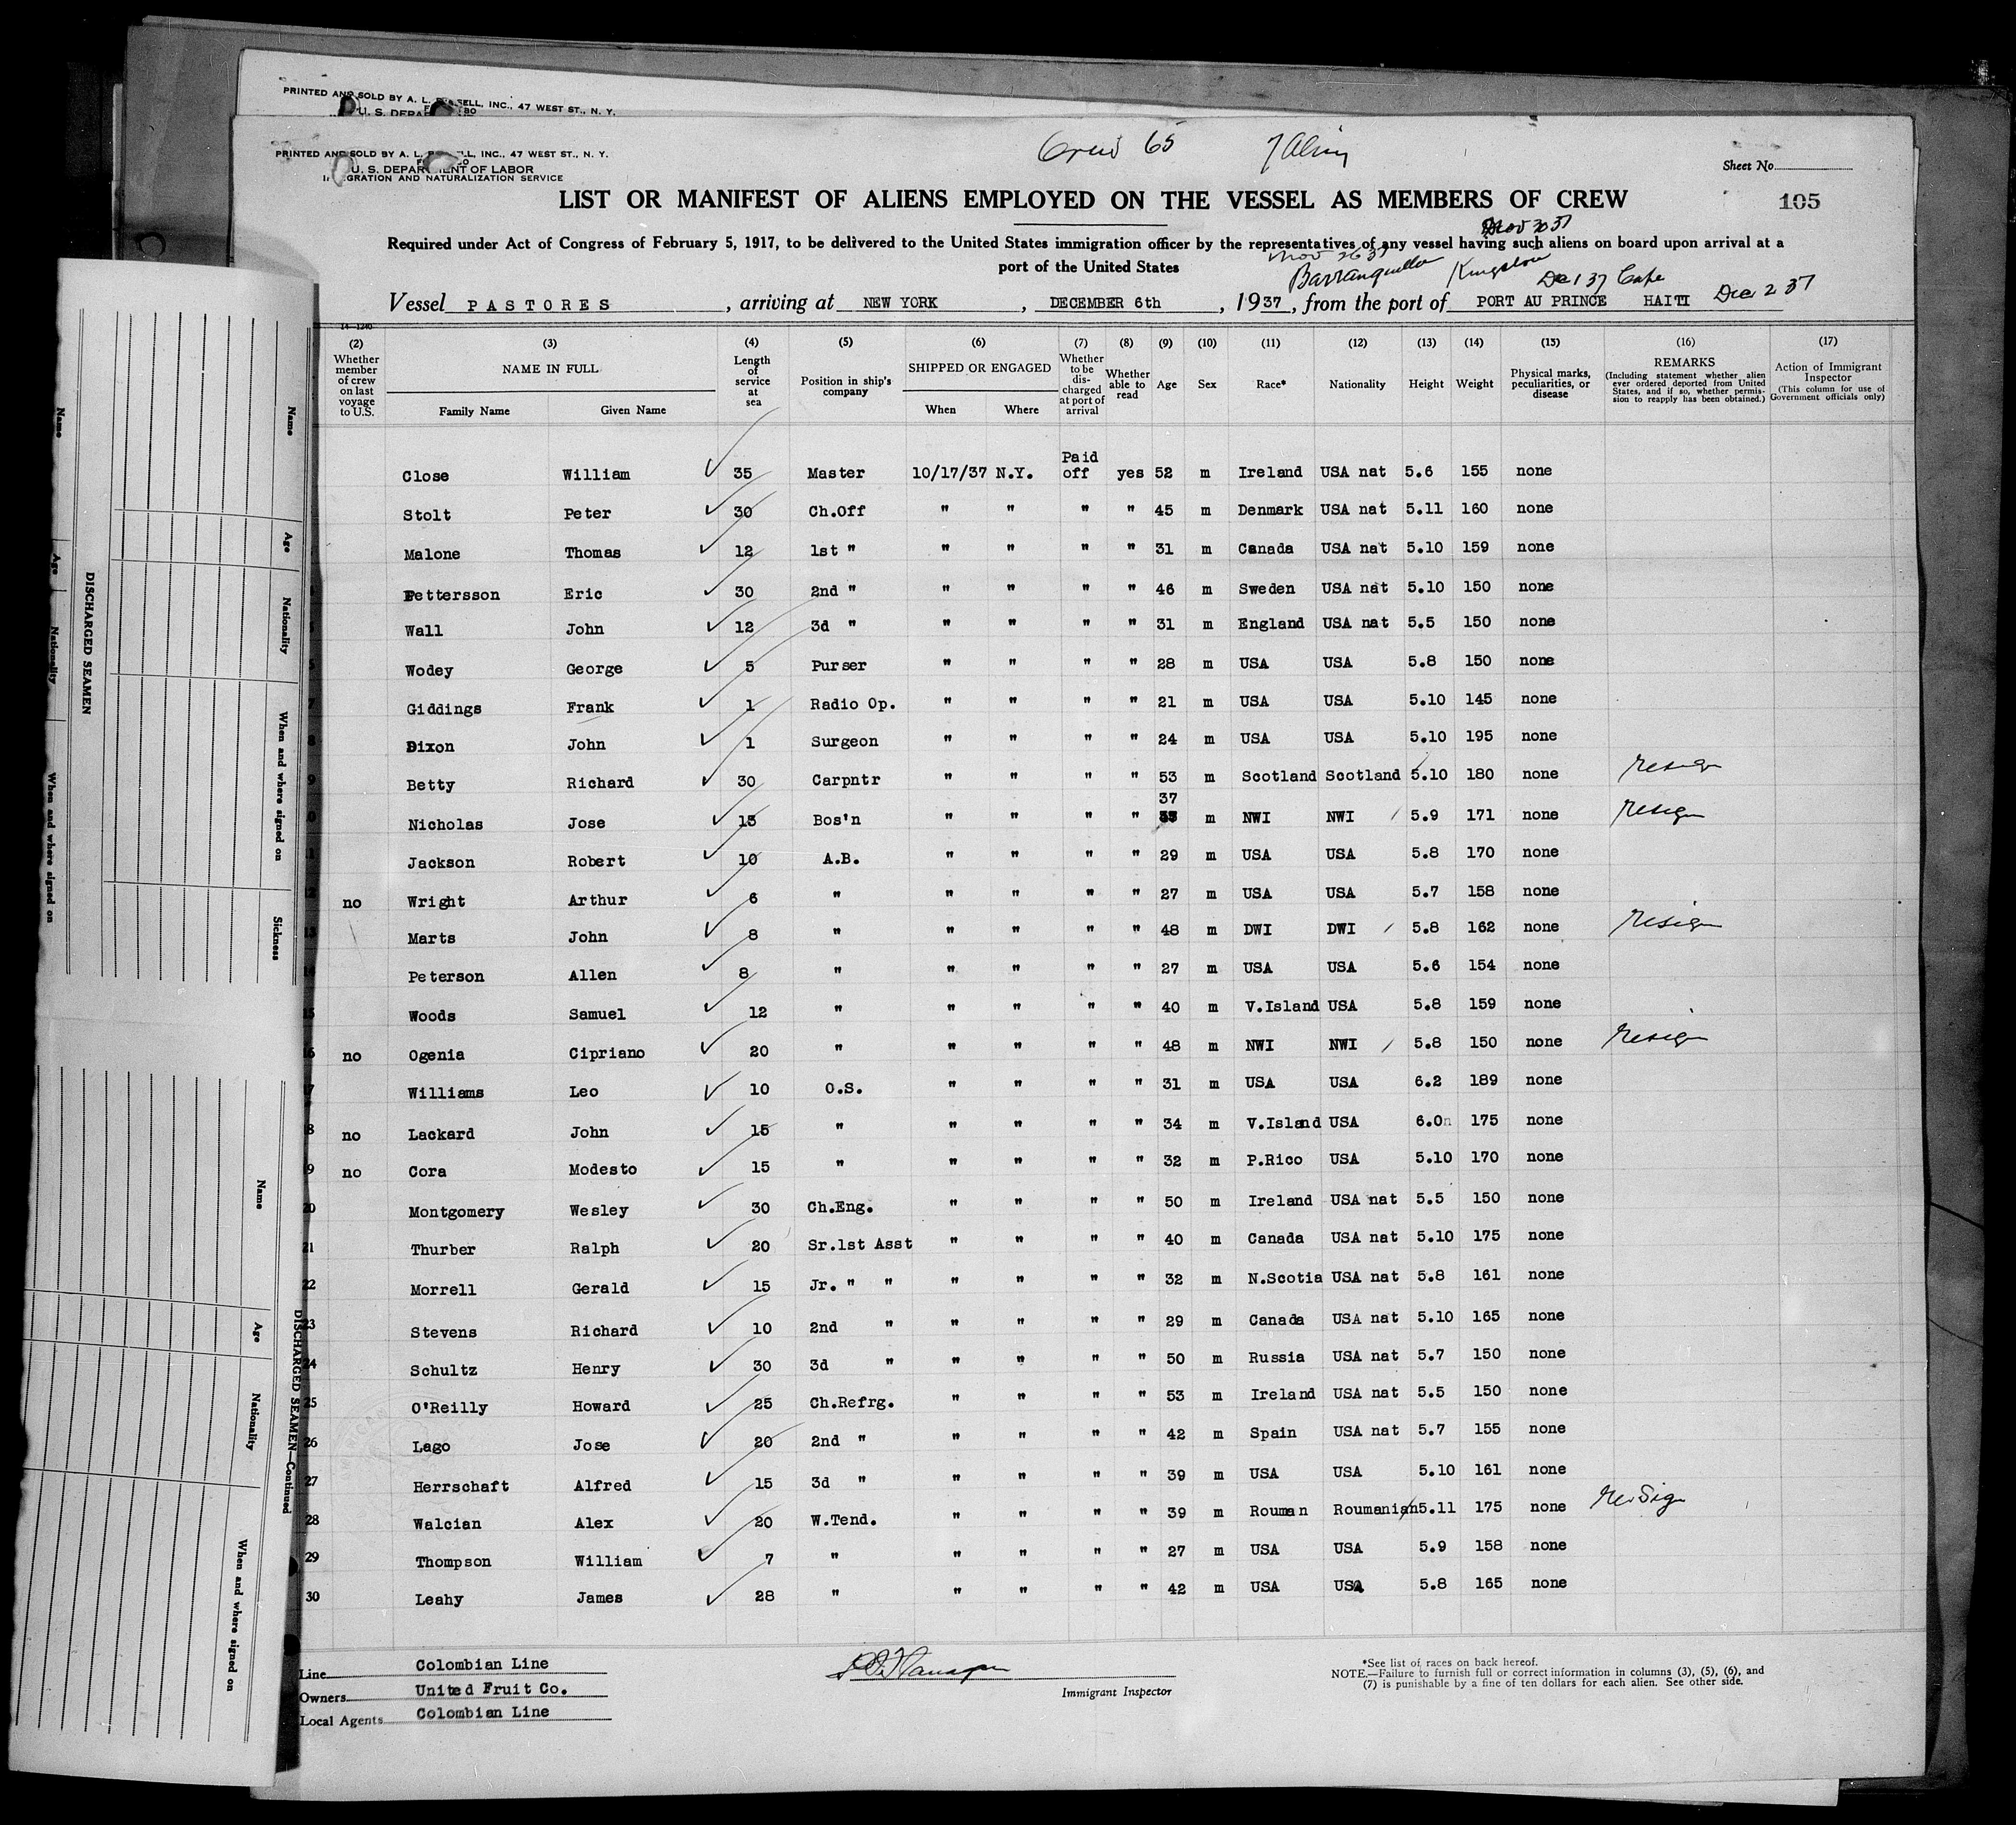 PRINTED AND SOLD BY A. L. SELL, INC., 47 WEST ST., N. Y.
U. S. DEPAR
Crew 65
PRINTED AND SOLD BY A. L. LL, INC., 47 WEST ST., N. Y.
U. S. DEPAR ENT OF LABOR
GRATION AND NATURALIZATION SERVICE
Sheet No.
LIST OR MANIFEST OF ALIENS EMPLOYED ON THE VESSEL AS MEMBERS OF CREW
105
Nov 30 37
Required under Act of Congress of February 5, 1917, to be delivered to the United States immigration officer by the representatives of any vessel having such aliens on board upon arrival at a
port of the United States
Nov 26 37
Barranquilla Kingston Dec 1 37 Cape Dec 2 37
Vessel PASTORES, arriving at NEW YORK, DECEMBER 6th, 1937, from the port of PORT AU PRINCE HAITI
14-1240
(2) Whether member of crew on last voyage to U.S.
(3) NAME IN FULL Family Name Given Name
(4) Length of service at sea
(5) Position in ship's company
(6) SHIPPED OR ENGAGED When Where
(7) Whether to be discharged at port of arrival
(8) Whether able to read
(9) Age
(10) Sex
(11) Race*
(12) Nationality
(13) Height
(14) Weight
(15) Physical marks, peculiarities, or disease
(16) REMARKS (Including statement whether alien ever ordered deported from United States, and if so, whether permission to reapply has been obtained.)
(17) Action of Immigrant Inspector (This column for use of Government officials only)
Close William 35 Master 10/17/37 N.Y. Paid off yes 52 m Ireland USA nat 5.6 155 none
Stolt Peter 30 Ch.Off " " " " 45 m Denmark USA nat 5.11 160 none
Malone Thomas 12 1st " " " " " 31 m Canada USA nat 5.10 159 none
Pettersson Eric 30 2nd " " " " " 46 m Sweden USA nat 5.10 150 none
Wall John 12 3d " " " " " 31 m England USA nat 5.5 150 none
Wodey George 5 Purser " " " " 28 m USA USA 5.8 150 none
7 Giddings Frank 1 Radio Op. " " " " 21 m USA USA 5.10 145 none
8 Dixon John 1 Surgeon " " " " 24 m USA USA 5.10 195 none
9 Betty Richard 30 Carpntr " " " " 53 m Scotland Scotland 5.10 180 none resign
0 Nicholas Jose 15 Bos'n " " " " 37 m NWI NWI 5.9 171 none resign
1 Jackson Robert 10 A.B. " " " " 29 m USA USA 5.8 170 none
12 no Wright Arthur 6 " " " " " 27 m USA USA 5.7 158 none
13 Marts John 8 " " " " " 48 m DWI DWI 5.8 162 none resign
14 Peterson Allen 8 " " " " " 27 m USA USA 5.6 154 none
15 Woods Samuel 12 " " " " " 40 m V.Island USA 5.8 159 none
16 no Ogenia Cipriano 20 " " " " " 48 m NWI NWI 5.8 150 none resign
17 Williams Leo 10 O.S. " " " " 31 m USA USA 6.2 189 none
8 no Lackard John 15 " " " " " 34 m V.Island USA 6.0 175 none
9 no Cora Modesto 15 " " " " " 32 m P.Rico USA 5.10 170 none
20 Montgomery Wesley 30 Ch.Eng. " " " " 50 m Ireland USA nat 5.5 150 none
21 Thurber Ralph 20 Sr.1st Asst " " " " 40 m Canada USA nat 5.10 175 none
22 Morrell Gerald 15 Jr. " " " " " " 32 m N.Scotia USA nat 5.8 161 none
23 Stevens Richard 10 2nd " " " " " 29 m Canada USA nat 5.10 165 none
24 Schultz Henry 30 3d " " " " " 50 m Russia USA nat 5.7 150 none
25 O'Reilly Howard 25 Ch.Refrg. " " " " 53 m Ireland USA nat 5.5 150 none
26 Lago Jose 20 2nd " " " " " 42 m Spain USA nat 5.7 155 none
27 Herrschaft Alfred 15 3d " " " " " 39 m USA USA 5.10 161 none
28 Walcian Alex 20 W.Tend. " " " " 39 m Rouman Roumanian 5.11 175 none ReSign
29 Thompson William 7 " " " " " 27 m USA USA 5.9 158 none
30 Leahy James 28 " " " " " 42 m USA USA 5.8 165 none
Line Colombian Line
Owners United Fruit Co.
Local Agents Colombian Line
Immigrant Inspector
*See list of races on back hereof.
NOTE.—Failure to furnish full or correct information in columns (3), (5), (6), and
(7) is punishable by a fine of ten dollars for each alien. See other side.
DISCHARGED SEAMEN
Name Age Nationality When and where signed on
Name Age Nationality When and where signed on Sickness
DISCHARGED SEAMEN—Continued
Name Age Nationality When and where signed on